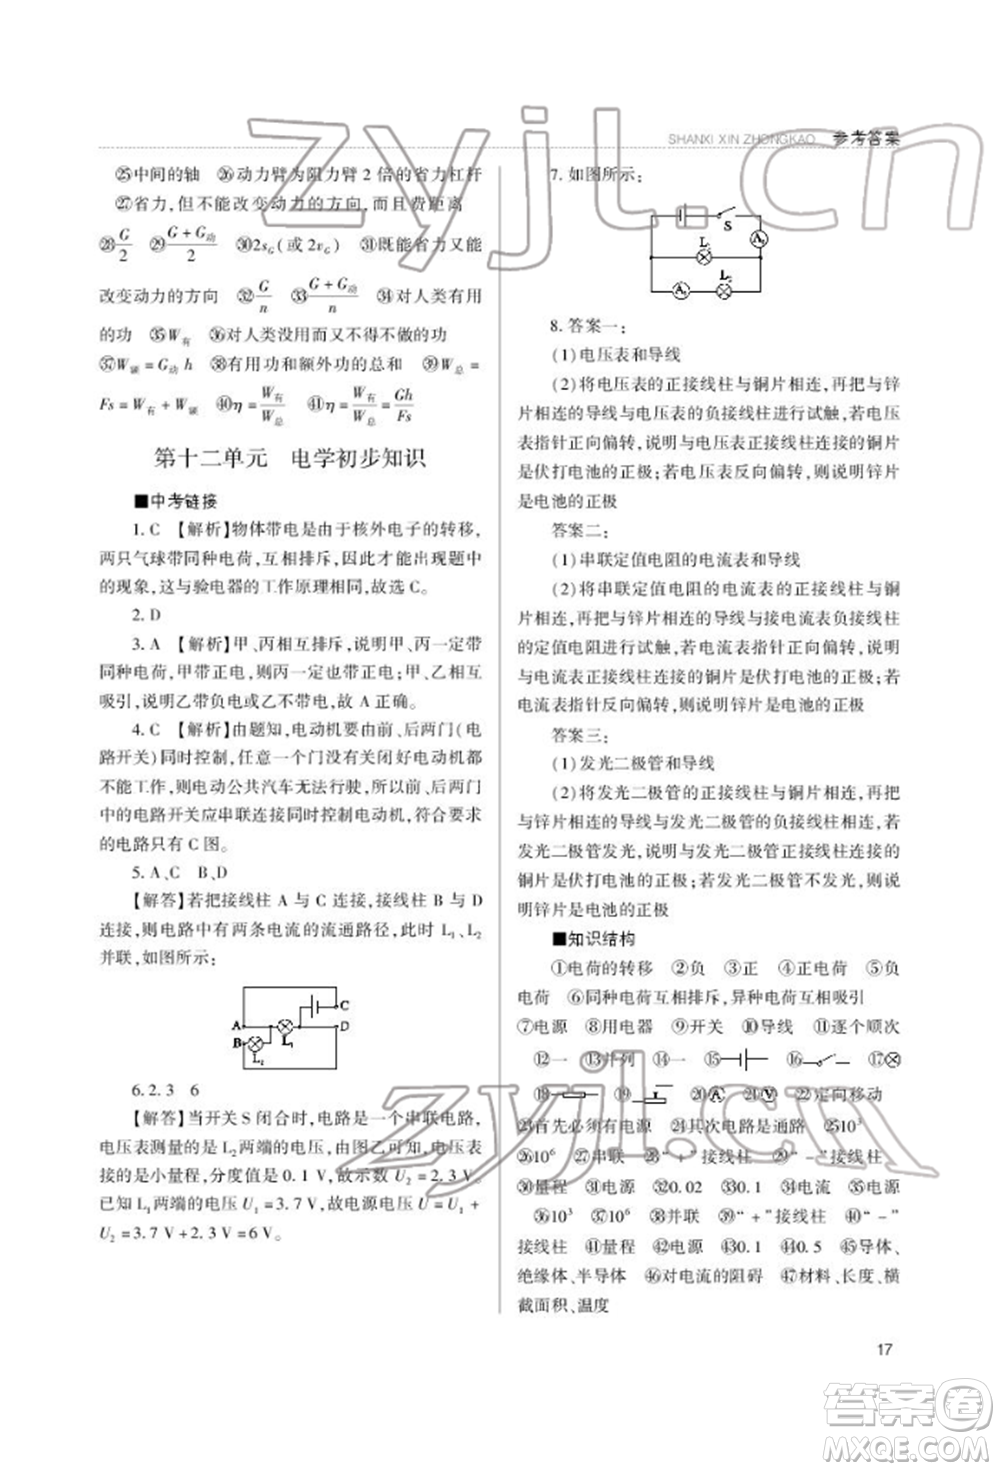 SHANXI XIN ZHONGKAO 参考答案
㉕中间的轴 ㉖动力臂为阻力臂 2 倍的省力杠杆
㉗省力,但不能改变动力的方向,而且费距离
㉘G/2 ㉙(G+G动)/2 ㉚2sG(或 2vG) ㉛既能省力又能
改变动力的方向 ㉜G/n ㉝(G+G动)/n ㉞对人类有用
的功 ㉟W有 ㊱对人类没用而又不得不做的功
㊲W额=G动 h ㊳有用功和额外功的总和 ㊴W总=
Fs=W有+W额 ㊵η=W有/W总 ㊶η=W有/W总=Gh/Fs
第十二单元 电学初步知识
■中考链接
1. C 【解析】物体带电是由于核外电子的转移,
两只气球带同种电荷,互相排斥,因此才能出现题中
的现象,这与验电器的工作原理相同,故选 C。
2. D
3. A 【解析】甲、丙相互排斥,说明甲、丙一定带
同种电荷,甲带正电,则丙一定也带正电;甲、乙相互
吸引,说明乙带负电或乙不带电,故 A 正确。
4. C 【解析】由题知,电动机要由前、后两门(电
路开关)同时控制,任意一个门没有关闭好电动机都
不能工作,则电动公共汽车无法行驶,所以前、后两门
中的电路开关应串联连接同时控制电动机,符合要求
的电路只有 C 图。
5. A、C B、D
【解答】若把接线柱 A 与 C 连接,接线柱 B 与 D
连接,则电路中有两条电流的流通路径,此时 L1、L2
并联,如图所示:
C
A L1 D
B
L2
6. 2.3 6
【解答】当开关 S 闭合时,电路是一个串联电路,
电压表测量的是 L2 两端的电压,由图乙可知,电压表
的是小量程,分度值是 0.1 V,故示数 U2=2.3 V。
已知 L1两端的电压 U1=3.7 V,故电源电压 U=U1+
U2=3.7 V+2.3 V=6 V。
7. 如图所示:
S
L1 A1
A2 L2
8. 答案一:
(1)电压表和导线
(2)将电压表的正接线柱与铜片相连,再把与锌
片相连的导线与电压表的负接线柱进行试触,若电压
表指针正向偏转,说明与电压表正接线柱连接的铜片
是伏打电池的正极;若电压表反向偏转,则说明锌片
是电池的正极
答案二:
(1)串联定值电阻的电流表和导线
(2)将串联定值电阻的电流表的正接线柱与铜片
相连,再把与锌片相连的导线与接电流表负接线柱
的定值电阻进行试触,若电流表指针正向偏转,说明
与电流表正接线柱连接的铜片是伏打电池的正极;若
电流表指针反向偏转,则说明锌片是电池的正极
答案三:
(1)发光二极管和导线
(2)将发光二极管的正接线柱与铜片相连,再把
与锌片相连的导线与发光二极管的负接线柱试触,若
发光二极管发光,说明与发光二极管正接线柱连接的
铜片是伏打电池的正极;若发光二极管不发光,则说
明锌片是电池的正极
■知识结构
①电荷的转移 ②负 ③正 ④正电荷 ⑤负
电荷 ⑥同种电荷互相排斥,异种电荷互相吸引
⑦电源 ⑧用电器 ⑨开关 ⑩导线 ⑪逐个顺次
⑫一 ⑬并列 ⑭一 ⑮ ⑯ ⑰
⑱ ⑲ ⑳A ㉑V ㉒定向移动
㉓首先必须有电源 ㉔其次电路是通路 ㉕10³
㉖10⁶ ㉗串联 ㉘“+”接线柱 ㉙“-”接线柱
㉚量程 ㉛电源 ㉜0.02 ㉝0.1 ㉞电流 ㉟电压
㊱10³ ㊲10⁶ ㊳并联 ㊴“+”接线柱 ㊵“-”
接线柱 ㊶量程 ㊷电源 ㊸0.1 ㊹0.5 ㊺导体、
绝缘体、半导体 ㊻对电流的阻碍 ㊼材料、长度、横
截面积、温度
17
zyjl.cn
zyjl.cn
答案圈
MXQE.COM